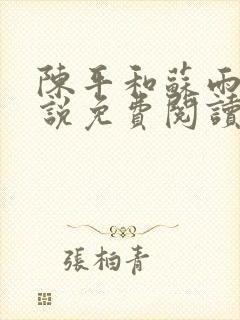 陳平和蘇雨
說免費閱讀
張柏青